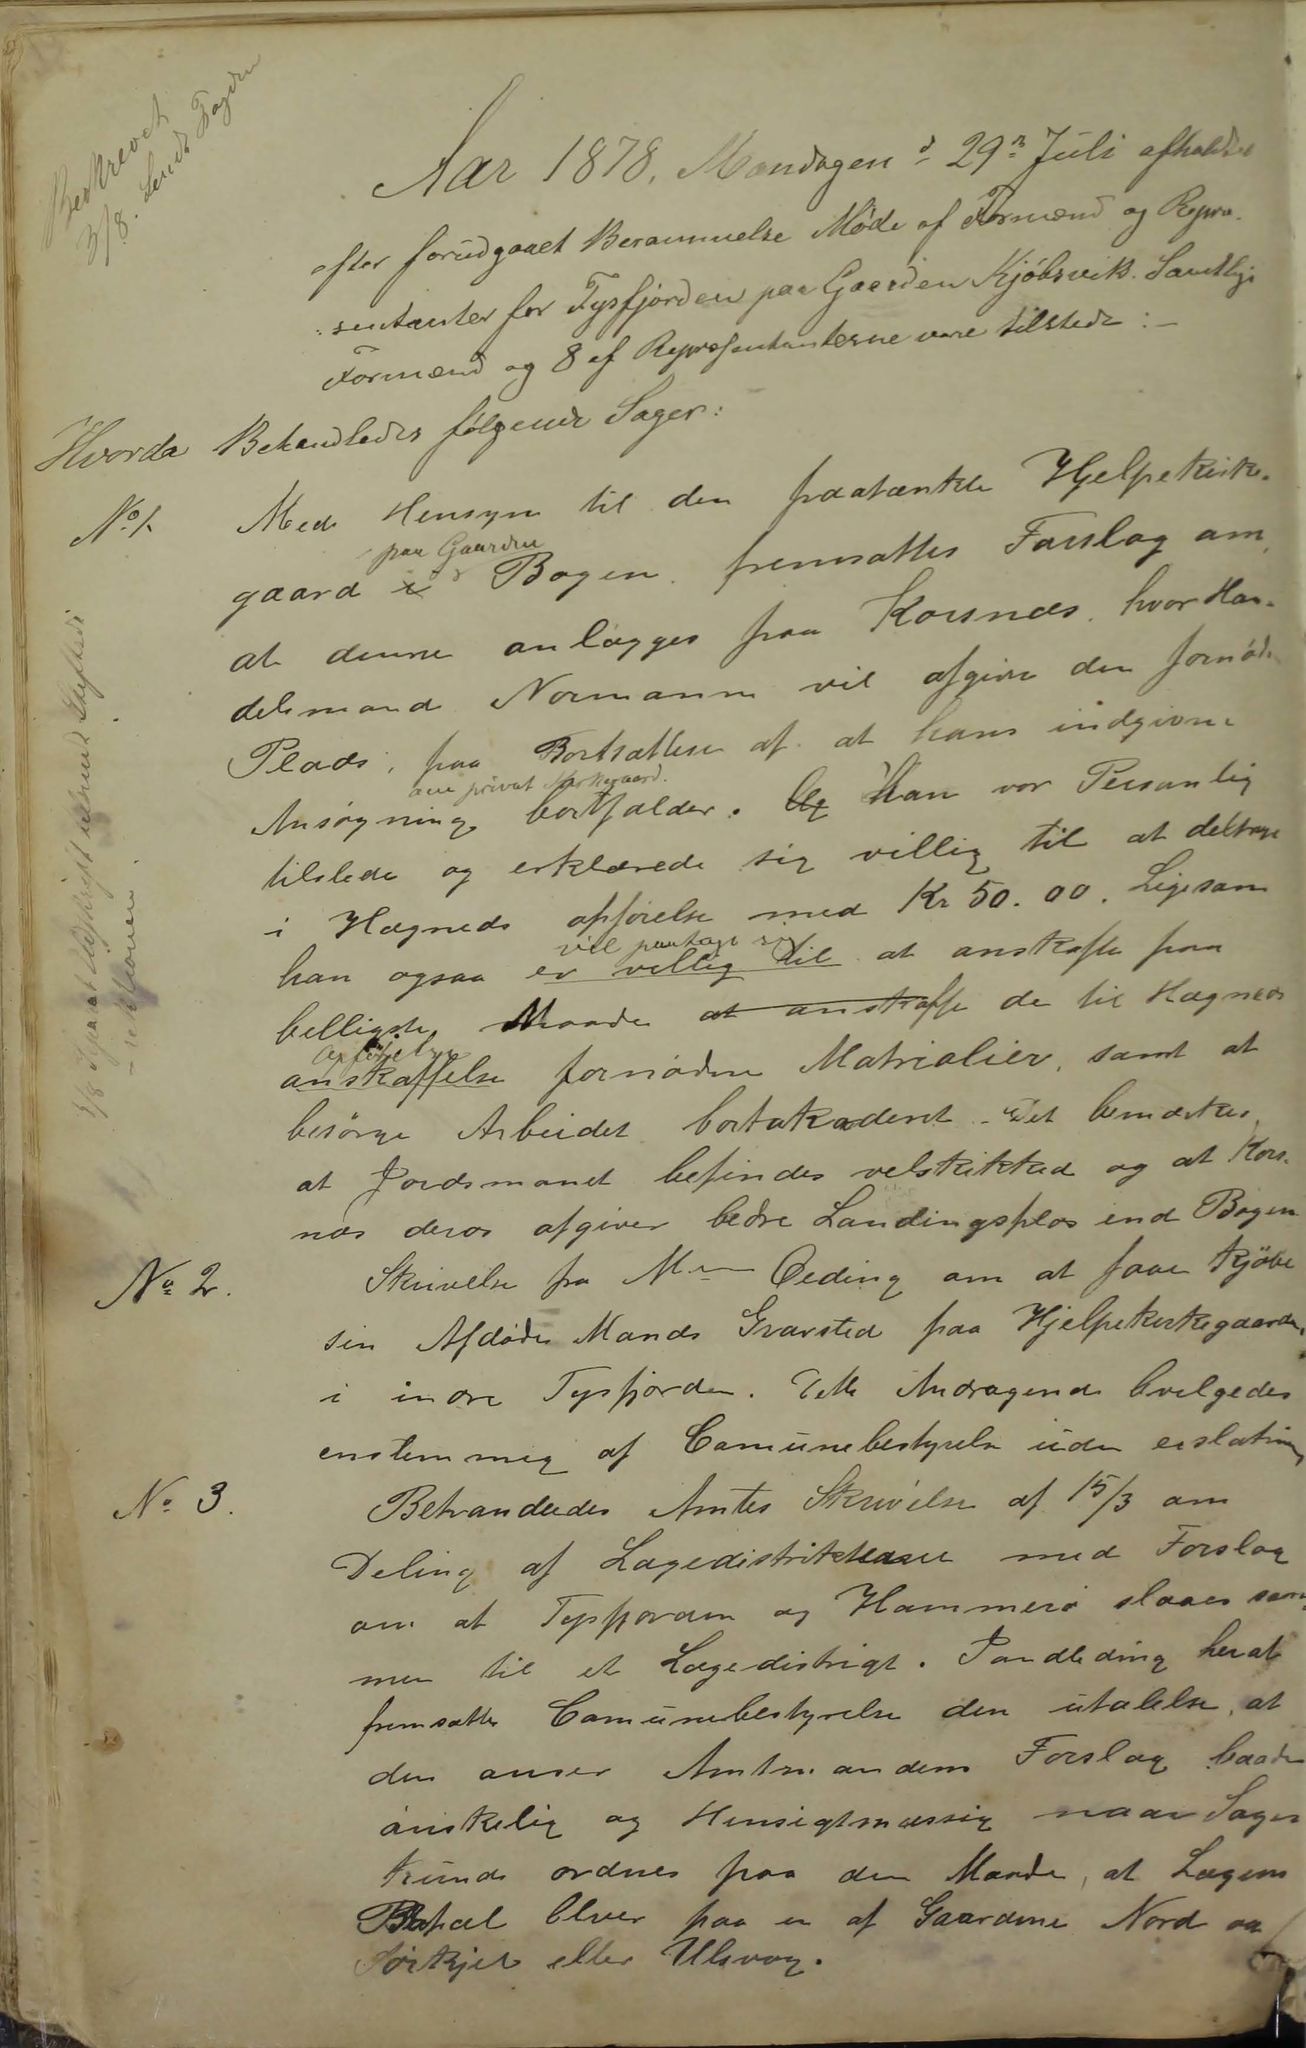 Beskrevet
3/8. Sendt Fogden
Aar 1878, Mandagen d 29n Juli afholdtes
efter forudgaaet Berammelse Møde af Formænd og Repræ-
sentanter for Tysfjorden paa Gaarden Kjøbsvik. Samtlige
Formænd og 8 af Repræsentanterne vare tilstede:-
Hvorda Behandledes følgende Sager:
No 1. Med Hensyn til den paatænkte Hjelpekirke-
paa Gaarden
gaard i Bogen fremsattes Forslag om,
at denne anlægges paa Korsnæs, hvor Han-
delsmand Normann vil afgive den fornødne
Plads, paa Fortsættelse af at hans indgivne
om privat Kirkegaard.
Ansøgning bortfalder. Og Han var Personlig
tilstede og erklærede sig villig til at deltage
i Hægnets opførelse med Kr 50.00. Ligesom
vil paatage sig
han ogsaa er villig til at anskaffe paa
belligste Maade at anskaffe de til Hægnets
Opførelse
anskaffelse fornødne Matrialier, samt at
besørge Arbeidet bortakorderet. Det bemærkes,
at Jordsmonet befindes velskikket og at Kors-
næs deros afgiver bedre Landingsplas end Bogen
No 2. Skrivelse fra Oeding om at faae kjøbe
sin Afdøde Mands Gravsted paa Hjelpekirkegaarden
i indre Tysfjorden. Dette Andragende bevilgedes
enstemmig af Comunebestyrelse uden erslatning
No 3. Behandledes Amtes Skrivelse af 15/3 om
Deling af Lægedistrikterne med Forslag
om at Tysfjorden og Hammerø slaaes sam
men til et Lægedistrigt. I andleding herat
fremsatte Comunebestyrelse den utalelse, at
den anser Amtmandens Forslag baade
ønskelig og Hensigtmæssig naar Sagen
kunde ordnes paa den Maade, at Lægens
Bopæl bliver paa en af Gaardene Nord og
Sørkjil eller Ulsvog.